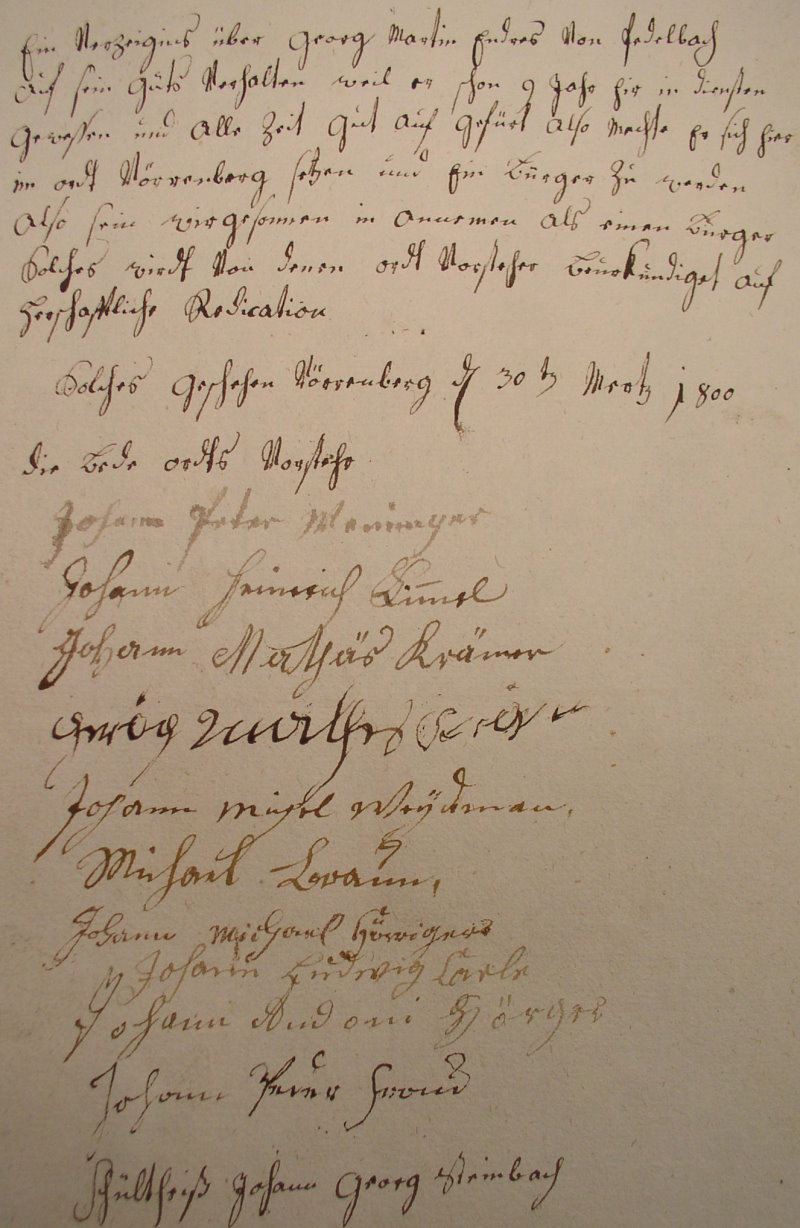 Ein Verzeignis über Georg Martin Endres Von Pedelbach
auf sein guts Verhalten weil er schon 9 Jahr hir in diensten
gewessen und alle Zeit gut auf gefürt also mechte Er sich hier
im ordt Nörrenberg setzen und Ein Burger zu werden
also sein wir gesonnen in annemen als einen Burger
Solches wirdt Von denen ordt Vorsteher beurkundiget auf
herschaftliche Redication
Solches geschehen Nörrenberg d 30 tz Mertz 1800
die bede ordts Vorstehr
Johann Peter
Johann Heinrich Kimmel
Johann Mathäs Krämer
Georg Mathes
Johann Michel Weydman.
Michael Braun,
Johann Michael
Johann Ludwig Carle
Johann Andoni Hörger
Johann Peder Fraud
Schultheiß Johann Georg Steinbach